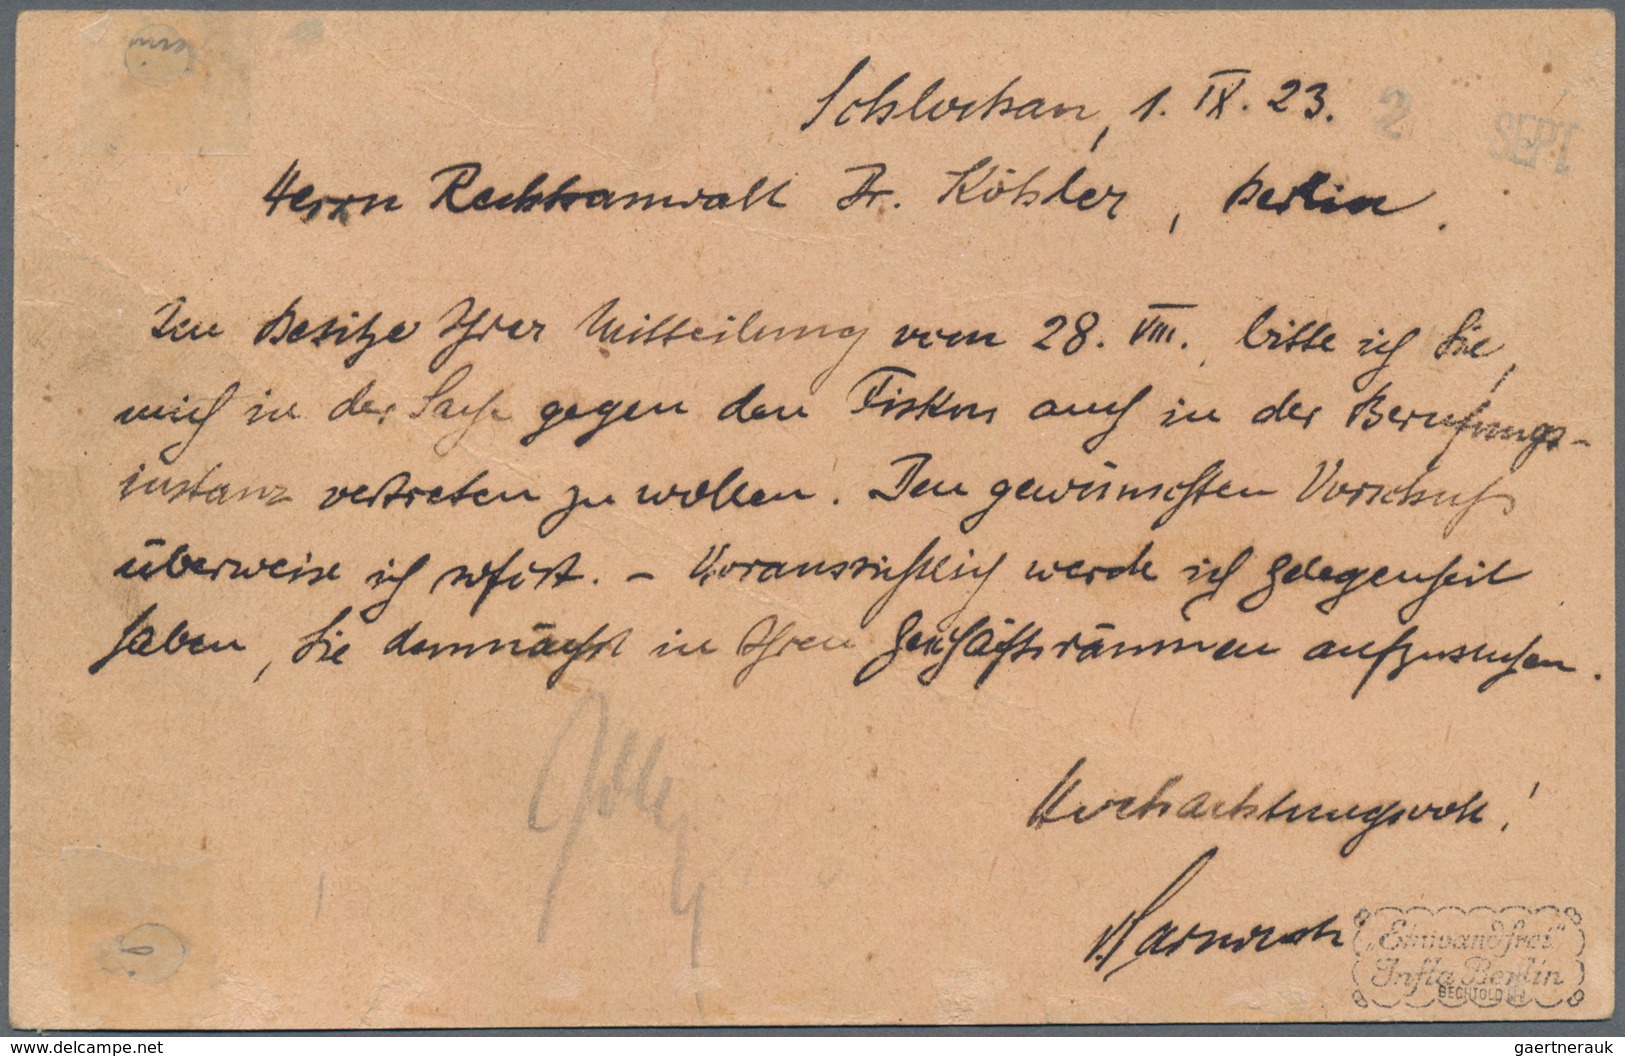 Schlochau, 1. IX. 23.
2 SEPT
Herrn Rechtsanwalt Dr. Köhler, Berlin.
Im Besitze Ihrer Mitteilung vom 28. VIII. bitte ich Sie,
mich in der Sache gegen den Fiskus auch in der Berufungs-
instanz vertreten zu wollen. Den gewünschten Vorschuß
überweise ich sofort. – Voraussichtlich werde ich Gelegenheit
haben, Sie demnächst in Ihren Geschäftsräumen aufzusuchen.
Hochachtungsvoll!
"Einwandfrei"
Infla Berlin
BECHTOLD
www.delcampe.net
gaertnerauk